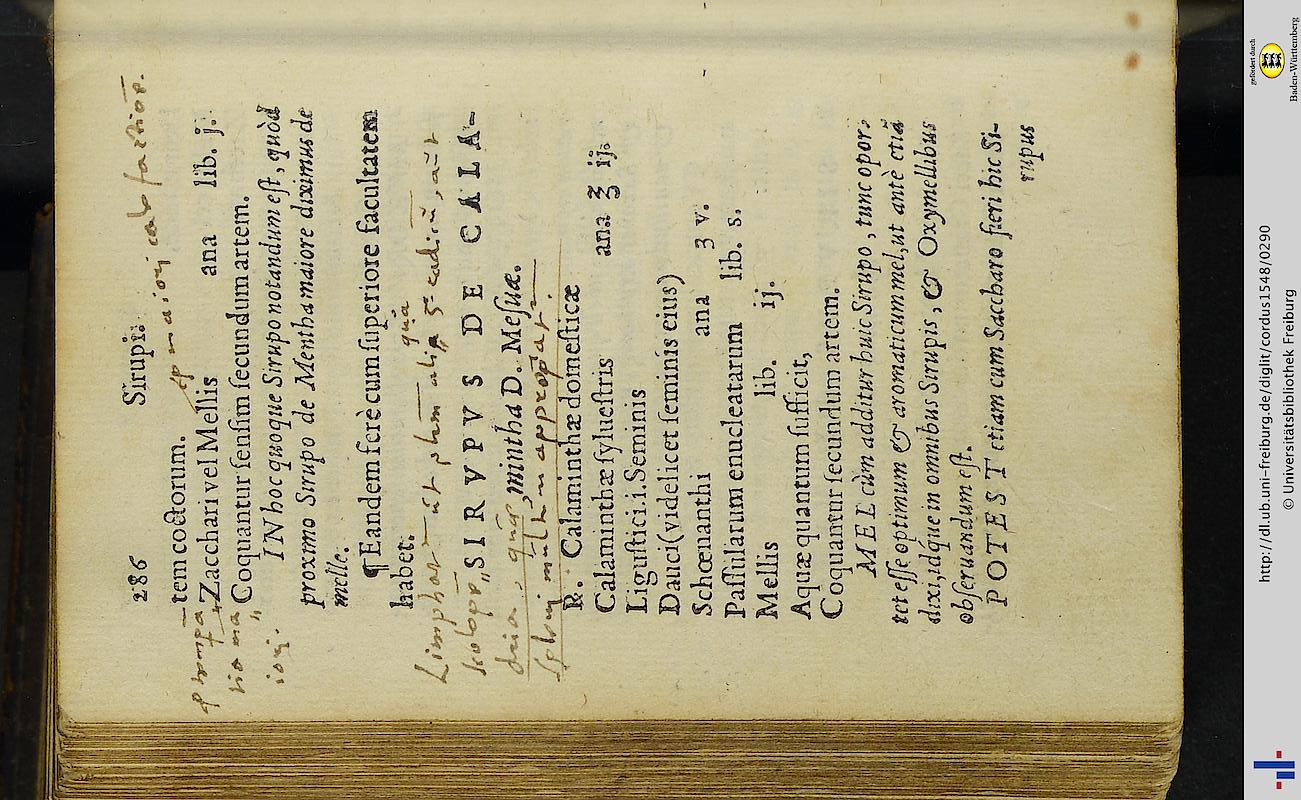 286 Sirupi.
tem coctorum.
Zacchari vel Mellis ana lib. j.
Coquantur sensim secundum artem.
IN hoc quoque Sirupo notandum est, quòd
proximo Sirupo de Mentha maiore diximus de
melle.
¶ Eandem ferè cum superiore facultatem
habet.
SIRVPVS DE CALA-
mintha D. Mesuæ.
℞. Calaminthæ domesticæ
Calaminthæ syluestris ana ℥ ij.
Ligustici .i. Seminis
Dauci (videlicet seminis eius)
Schœnanthi ana ʒ v.
Passularum enucleatarum lib. s.
Mellis lib. ij.
Aquæ quantum sufficit,
Coquantur secundum artem.
MEL cùm additur huic Sirupo, tunc opor-
tet esse optimum & aromaticum mel, ut antè etiã
dixi, idque in omnibus Sirupis, & Oxymellibus
obseruandum est.
POTEST etiam cum Saccharo fieri hic Si-
rupus
gefördert durch
Baden-Württemberg
http://dl.ub.uni-freiburg.de/diglit/cordus1548/0290
© Universitätsbibliothek Freiburg